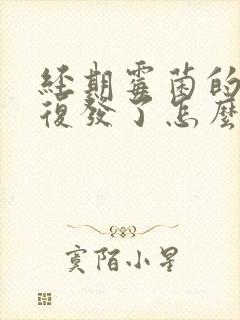 经期霉菌的
复發了怎麼
寞陌小星